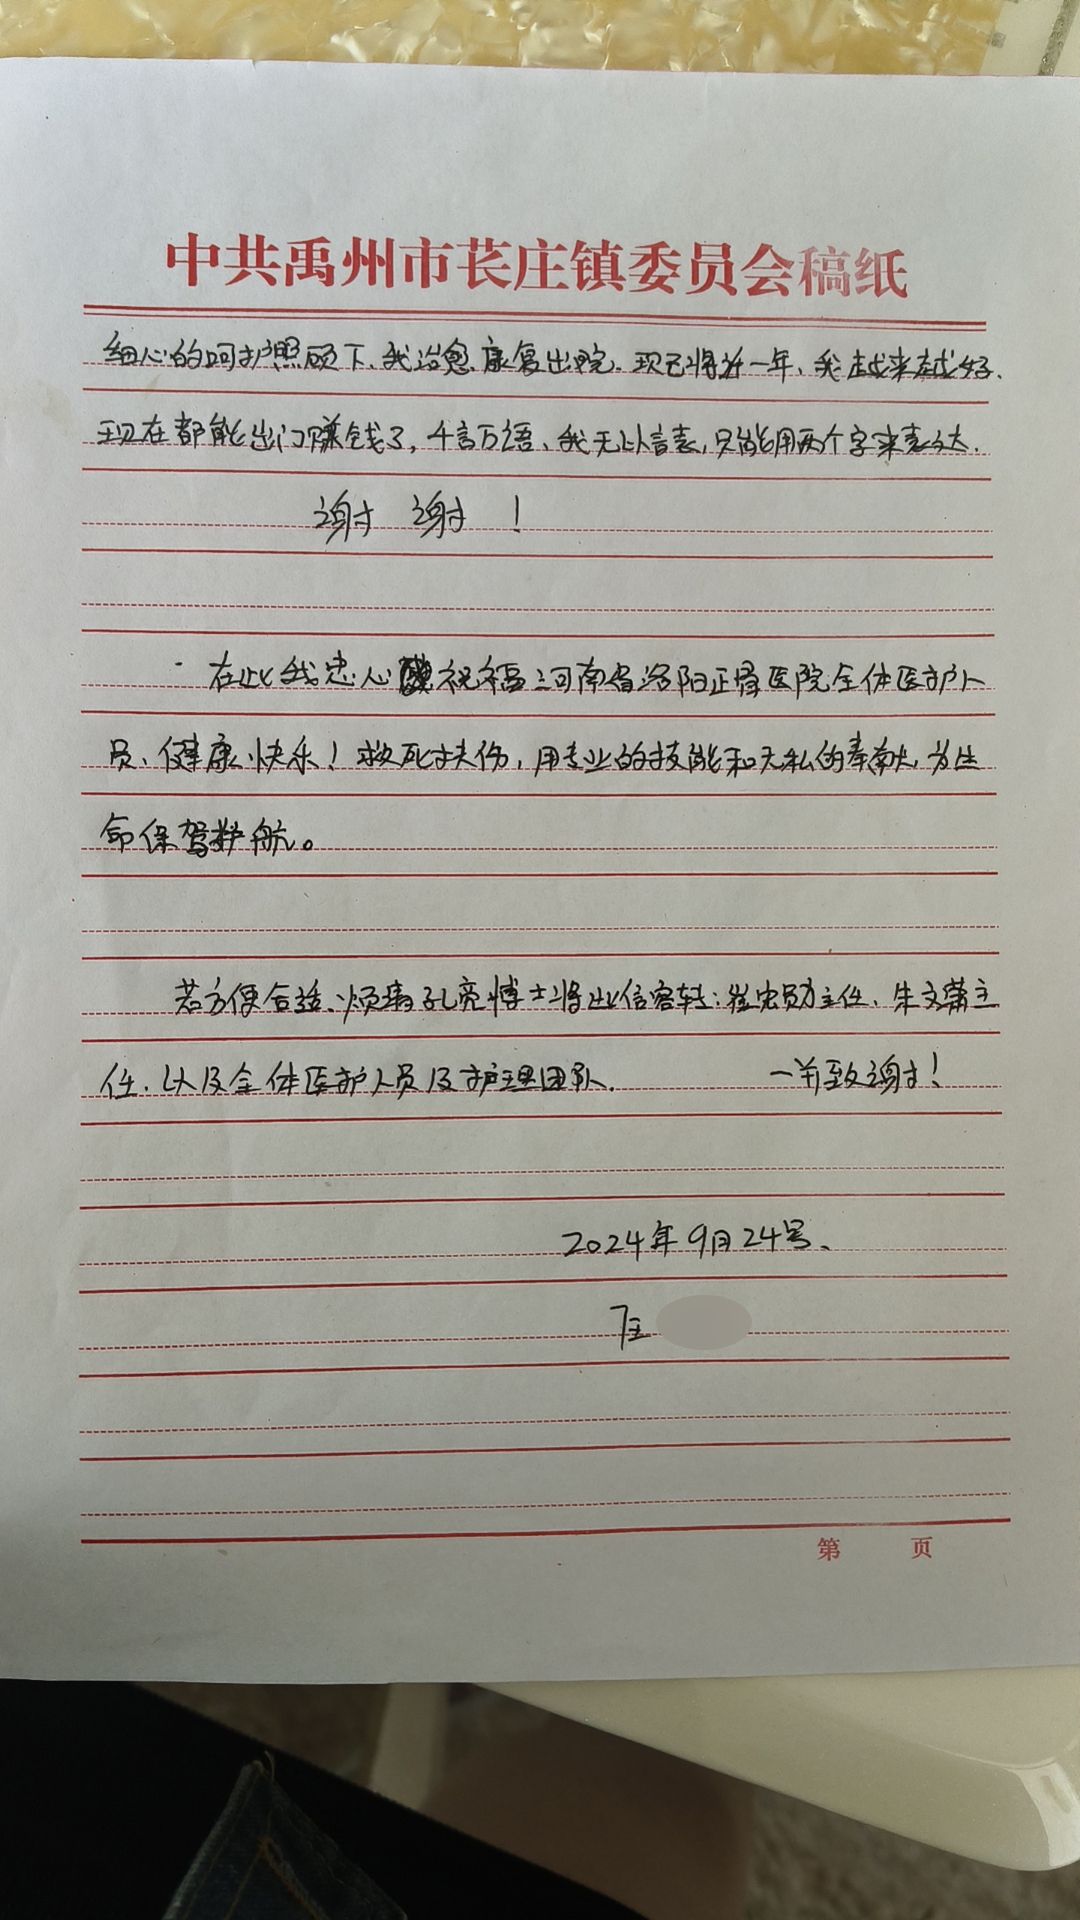 中共禹州市苌庄镇委员会稿纸
细心的呵护照顾下、我治愈康复出院.现已将近一年、我越来越好.
现在都能出门赚钱了,千言万语、我无以言表,只能用两个字来表达.
谢 谢 !
在此我忠心祝福:河南省洛阳正骨医院全体医护人
员、健康快乐!救死扶伤,用专业的技能和无私的奉献,为生
命保驾护航。
若方便合适、烦请孔亮博士将此信客转:崔忠勋主任、朱文潇主
任、以及全体医护人员及护理团队. 一并致谢!
2024年9月24号、
第 页